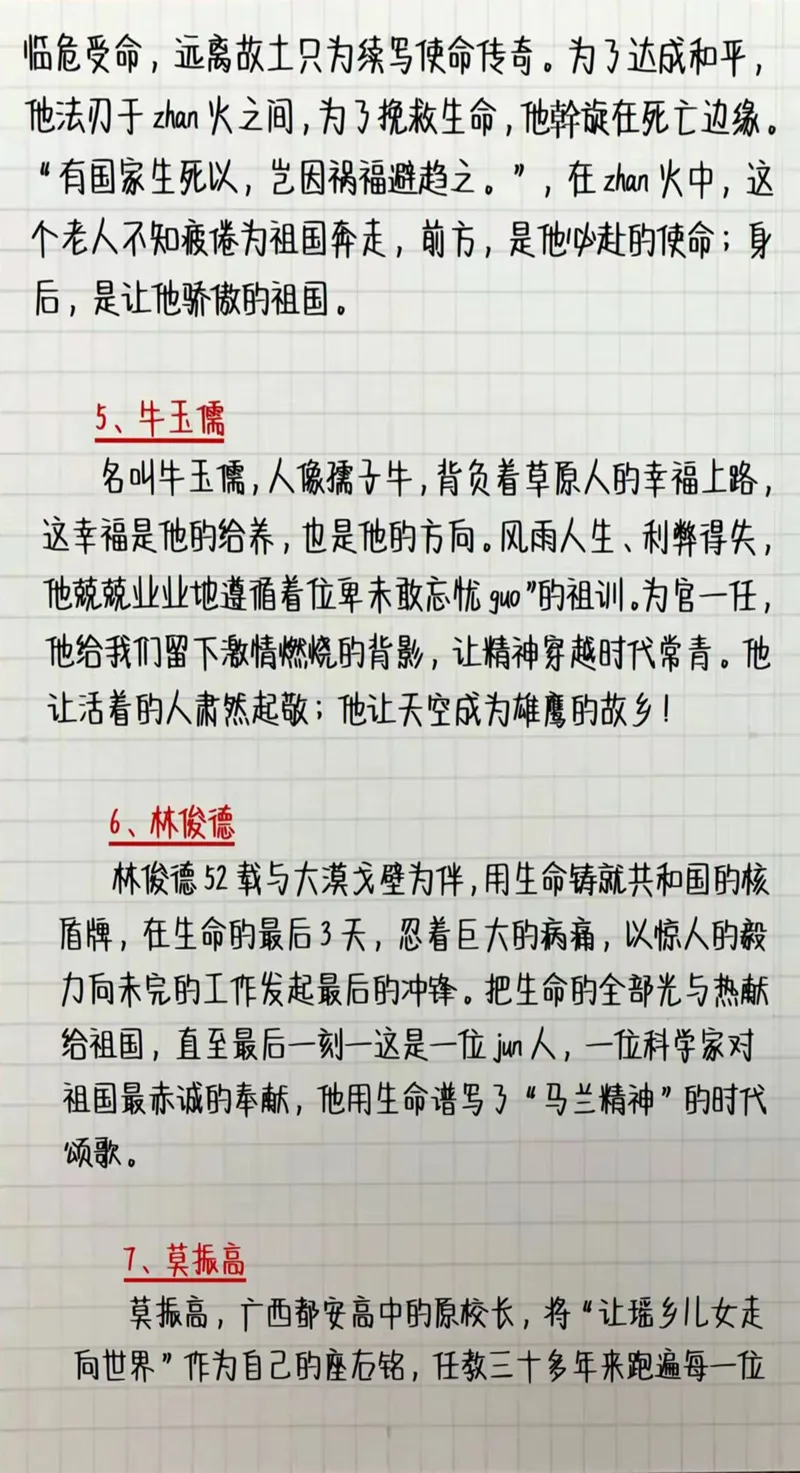 临危受命，远离故土只为续写使命传奇。为了达成和平，
他法刃于zhan火之间，为了挽救生命，他斡旋在死亡边缘。
“有国家生死以，岂因祸福避趋之。”，在zhan火中，这
个老人不知疲倦为祖国奔走，前方，是他必赴的使命；身
后，是让他骄傲的祖国。
5、牛玉儒
名叫牛玉儒，人像孺子牛，背负着草原人的幸福上路，
这幸福是他的给养，也是他的方向。风雨人生、利弊得失，
他兢兢业业地遵循着位卑未敢忘忧guo”的祖训。为官一任，
他给我们留下激情燃烧的背影，让精神穿越时代常青。他
让活着的人肃然起敬；他让天空成为雄鹰的故乡！
6、林俊德
林俊德52载与大漠戈壁为伴，用生命铸就共和国的核
盾牌，在生命的最后3天，忍着巨大的病痛，以惊人的毅
力向未完的工作发起最后的冲锋。把生命的全部光与热献
给祖国，直至最后一刻一这是一位jun人，一位科学家对
祖国最赤诚的奉献，他用生命谱写了“马兰精神”的时代
颂歌。
7、莫振高
莫振高，广西都安高中的原校长，将“让瑶乡儿女走
向世界”作为自己的座右铭，任教三十多年来跑遍每一位